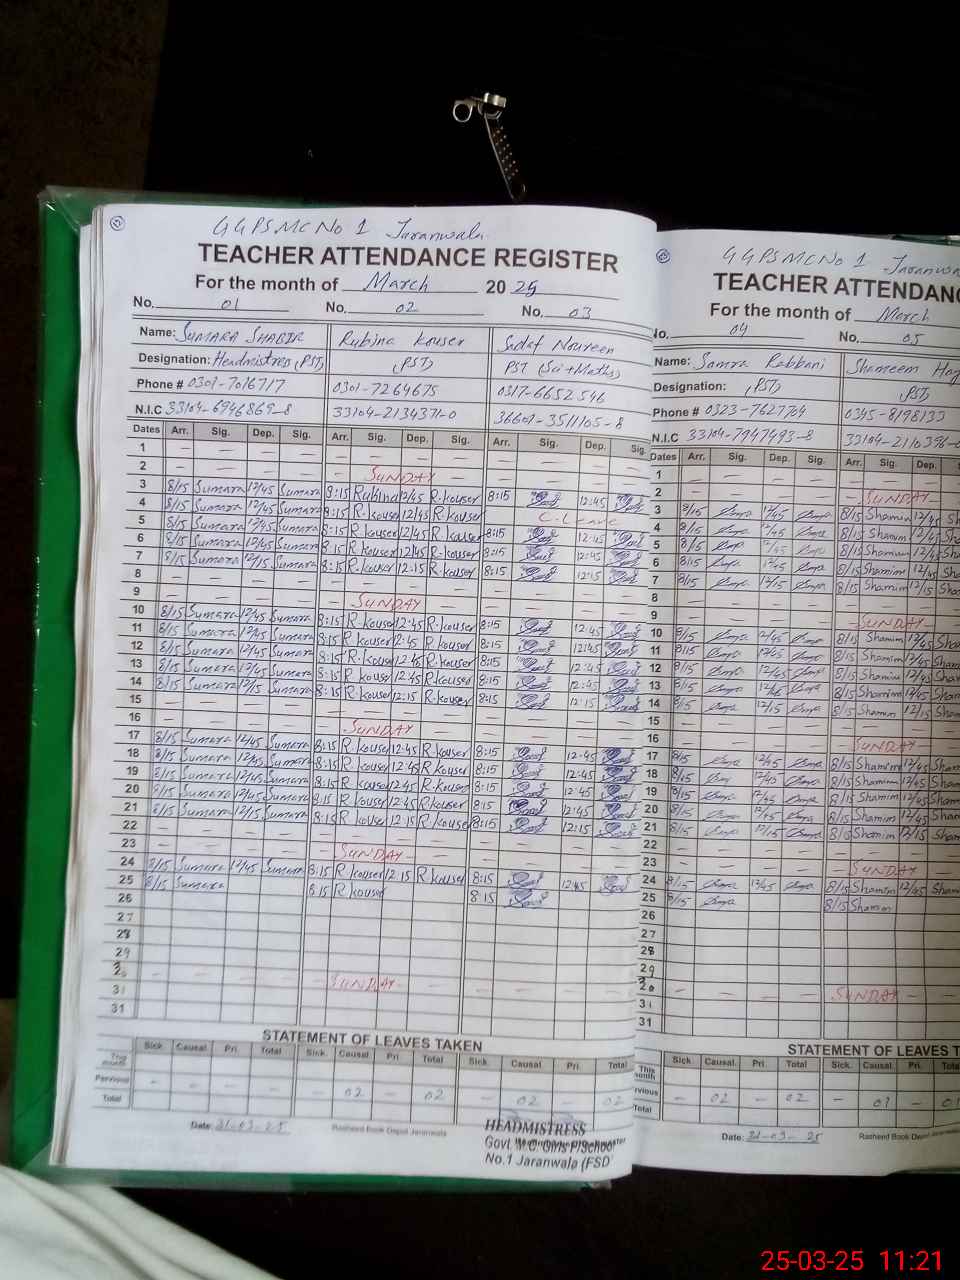 GGPSMC No 1 Jaranwala
TEACHER ATTENDANCE REGISTER
For the month of March 2025
No. 01 No. 02 No. 03
Name: SUMARA SHABIR Rubina Kouser Sadaf Noureen
Designation: Headmistress (PST) (PST) PST (Sci+Maths)
Phone # 0301-7016717 0301-7264675 0317-6652546
N.I.C 33104-6946869-8 33104-2134371-0 36601-3511105-8
Dates Arr. Sig. Dep. Sig. Arr. Sig. Dep. Sig. Arr. Sig. Dep. Sig.
1
2 SUNDAY
3 8/15 Sumara 12/45 Sumara 8:15 Rubina 12/45 R.kouser 8:15 12:45
4 8/15 Sumara 12/45 Sumara 8:15 R.kouser 12/45 R.kouser C.Leave
5 8/15 Sumara 12/45 Sumara 8:15 R.kouser 12/45 R.kouser 8:15 12:45
6 8/15 Sumara 12/45 Sumara 8:15 R.kouser 12/45 R.kouser 8:15 12:45
7 8/15 Sumara 12/15 Sumara 8:15 R.kouser 12:15 R.kouser 8:15 12:15
8
9 SUNDAY
10 8/15 Sumara 12/45 Sumara 8:15 R.kouser 12:45 R.kouser 8:15 12:45
11 8/15 Sumara 12/45 Sumara 8:15 R.kouser 12:45 R.kouser 8:15 12:45
12 8/15 Sumara 12/45 Sumara 8:15 R.kouser 12:45 R.kouser 8:15 12:45
13 8/15 Sumara 12/45 Sumara 8:15 R.kouser 12:45 R.kouser 8:15 12:45
14 8/15 Sumara 12/15 Sumara 8:15 R.kouser 12:15 R.kouser 8:15 12:15
15
16 SUNDAY
17 8/15 Sumara 12/45 Sumara 8:15 R.kouser 12:45 R kouser 8:15 12:45
18 8/15 Sumara 12/45 Sumara 8:15 R kouser 12:45 R kouser 8:15 12:45
19 8/15 Sumara 12/45 Sumara 8:15 R kouser 12:45 R.kouser 8:15 12:45
20 8/15 Sumara 12/45 Sumara 8:15 R kouser 12:45 R kouser 8:15 12:45
21 8/15 Sumara 12/15 Sumara 8:15 R kouser 12:15 R kouser 8:15 12:15
22
23 SUNDAY
24 8/15 Sumara 12/45 Sumara 8:15 R kouser 12:15 R kouser 8:15 12:45
25 8/15 Sumara 8:15 R kouser 8:15
26
27
28
29
30 SUNDAY
31
31
STATEMENT OF LEAVES TAKEN
Sick. Causal. Pri. Total Sick. Causal Pri. Total Sick. Causal Pri. Total
This month
Pervious - - - - - 02 - 02 - 02 - 02
Total
Date: 31-03-25 Rasheed Book Depot Jaranwala
HEADMISTRESS
Govt. M.C. Girls P/School
No.1 Jaranwala (FSD)
GGPSMC No 1 Jaranwa
TEACHER ATTENDANC
For the month of March
No. 04 No. 05
Name: Samra Rabbani Shameem
Designation: (PST) (PST)
Phone # 0323-7627704 0345-8198133
N.I.C 33104-7947493-8 33104-2110396-0
Dates Arr. Sig. Dep. Sig. Arr. Sig. Dep.
1
2 SUNDAY
3 8/15 12/45 8/15 Shamim 12/45 Sha
4 8/15 12/45 8/15 Shamim 12/45 Sha
5 8/15 12/45 8/15 Shamim 12/45 Sha
6 8/15 12/45 8/15 Shamim 12/45 Sha
7 8/15 12/15 8/15 Shamim 12/15 Sha
8
9 SUNDAY
10 8/15 12/45 8/15 Shamim 12/45 Sham
11 8/15 12/45 8/15 Shamim 12/45 Sham
12 8/15 12/45 8/15 Shamim 12/45 Sham
13 8/15 12/45 8/15 Shamim 12/45 Sham
14 8/15 12/15 8/15 Shamim 12/15 Sham
15
16 SUNDAY
17 8/15 12/45 8/15 Shamim 12/45 Sham
18 8/15 12/45 8/15 Shamim 12/45 Sham
19 8/15 12/45 8/15 Shamim 12/45 Sham
20 8/15 12/45 8/15 Shamim 12/45 Sham
21 8/15 12/15 8/15 Shamim 12/15 Sham
22
23 SUNDAY
24 8/15 12/45 8/15 Shamim 12/45 Sham
25 8/15 8/15 Shamim
26
27
28
29
30 SUNDAY
31
31
STATEMENT OF LEAVES T
Sick. Causal. Pri. Total Sick. Causal Pri.
This month
vious - 02 - 02 - 01 -
Total
Date: 31-03-25 Rasheed Book Depot Jaranwala
25-03-25 11:21